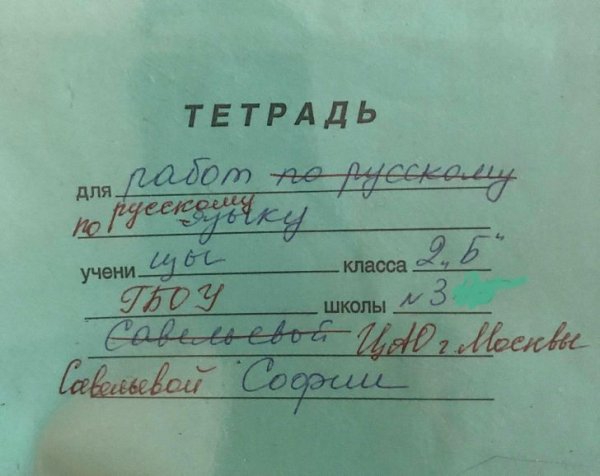 ТЕТРАДЬ
для работ по русскому
по русскому языку
учени цы класса 2 „Б“
ГБОУ школы №3
Савельевой ЦАО г. Москвы
Савельевой Софии